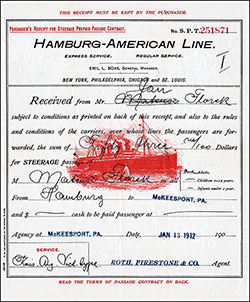 THIS RECEIPT MUST BE KEPT BY THE PURCHASER.
PURCHASER'S RECEIPT FOR STEERAGE PREPAID PASSAGE CONTRACT.
No. S. P. T. 251871
HAMBURG-AMERICAN LINE.
EXPRESS SERVICE. REGULAR SERVICE.
EMIL L. BOAS, GENERAL MANAGER.
I
NEW YORK, PHILADELPHIA, CHICAGO AND ST. LOUIS.
Jan
Received from Mr
subject to conditions as printed on back of this receipt, and also to the rules
and conditions of the carriers, over whose lines the passengers are for-
warded, the sum of Fifty Three 100 Dollars
for STEERAGE passage
Adults.
M Children
Infants under 1 year.
From Hamburg to MCKEESPORT, PA.
and $ cash to be paid passenger at
Agency at MCKEESPORT, PA. Date, JAN 13 1912 190
SERVICE.
ROTH, FIRESTONE & CO. Agent.
READ THE TERMS OF PASSAGE CONTRACT ON BACK.